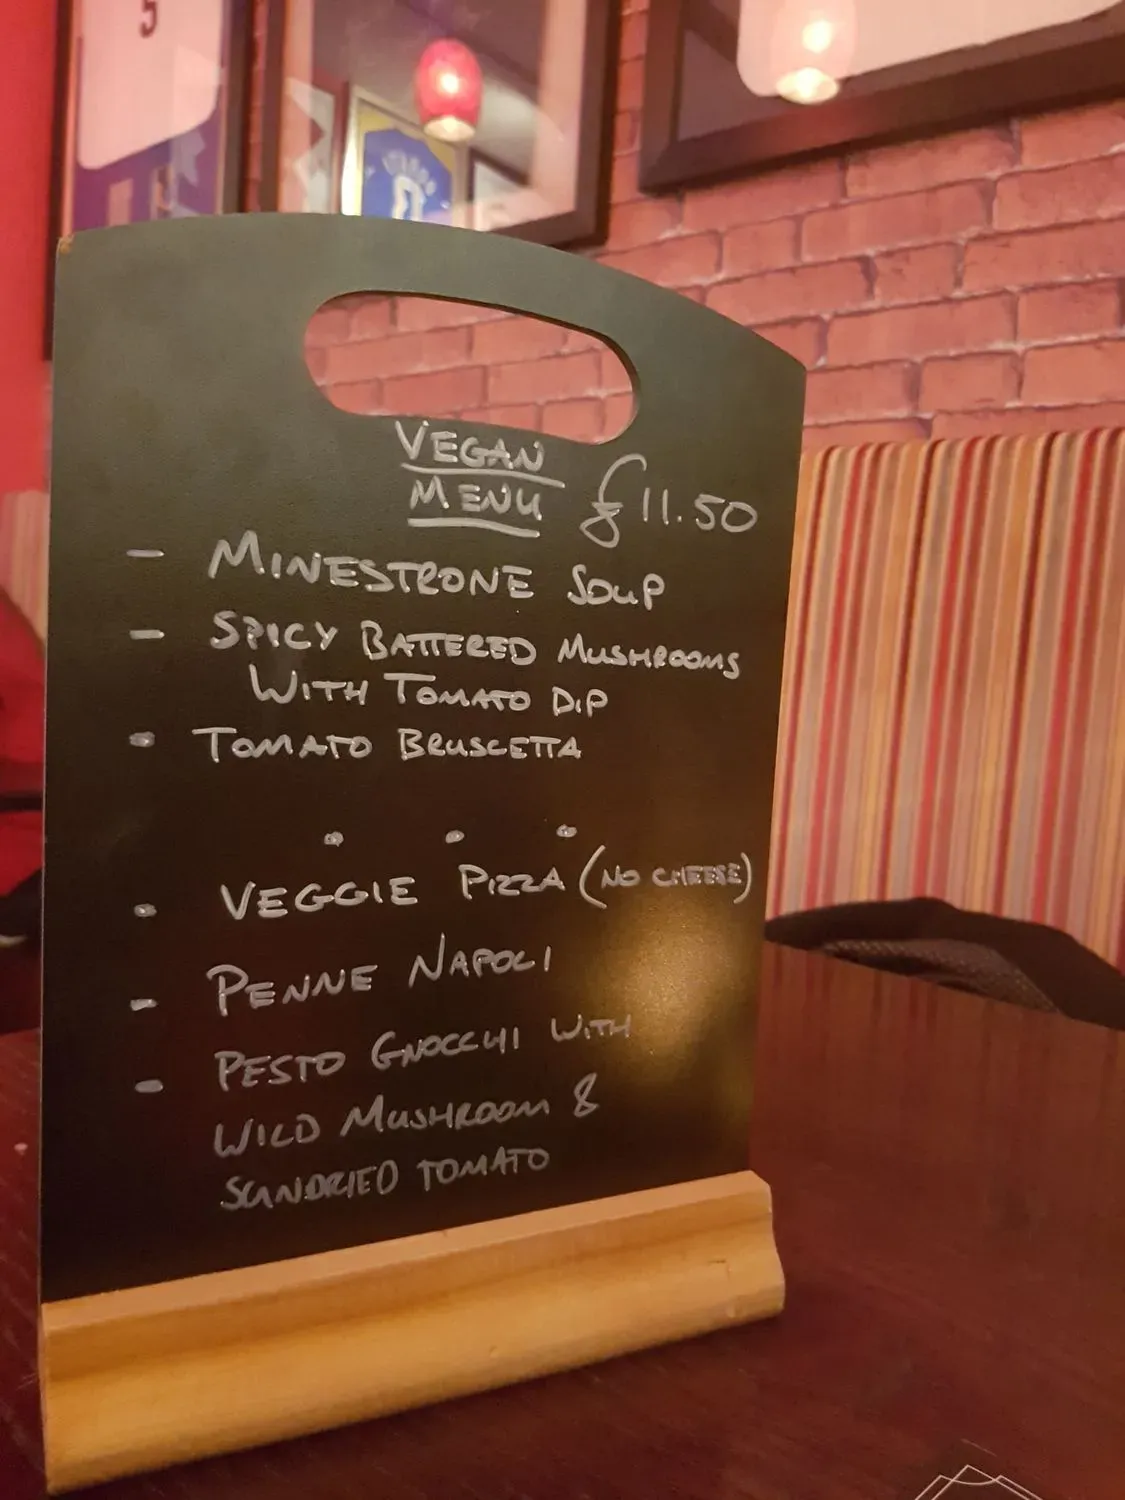 5
VEGAN
MENU £11.50
- MINESTRONE SOUP
- SPICY BATTERED MUSHROOMS
WITH TOMATO DIP
• TOMATO BRUSCETTA
• • •
- VEGGIE PIZZA (NO CHEESE)
- PENNE NAPOLI
- PESTO GNOCCHI WITH
WILD MUSHROOM &
SUNDRIED TOMATO